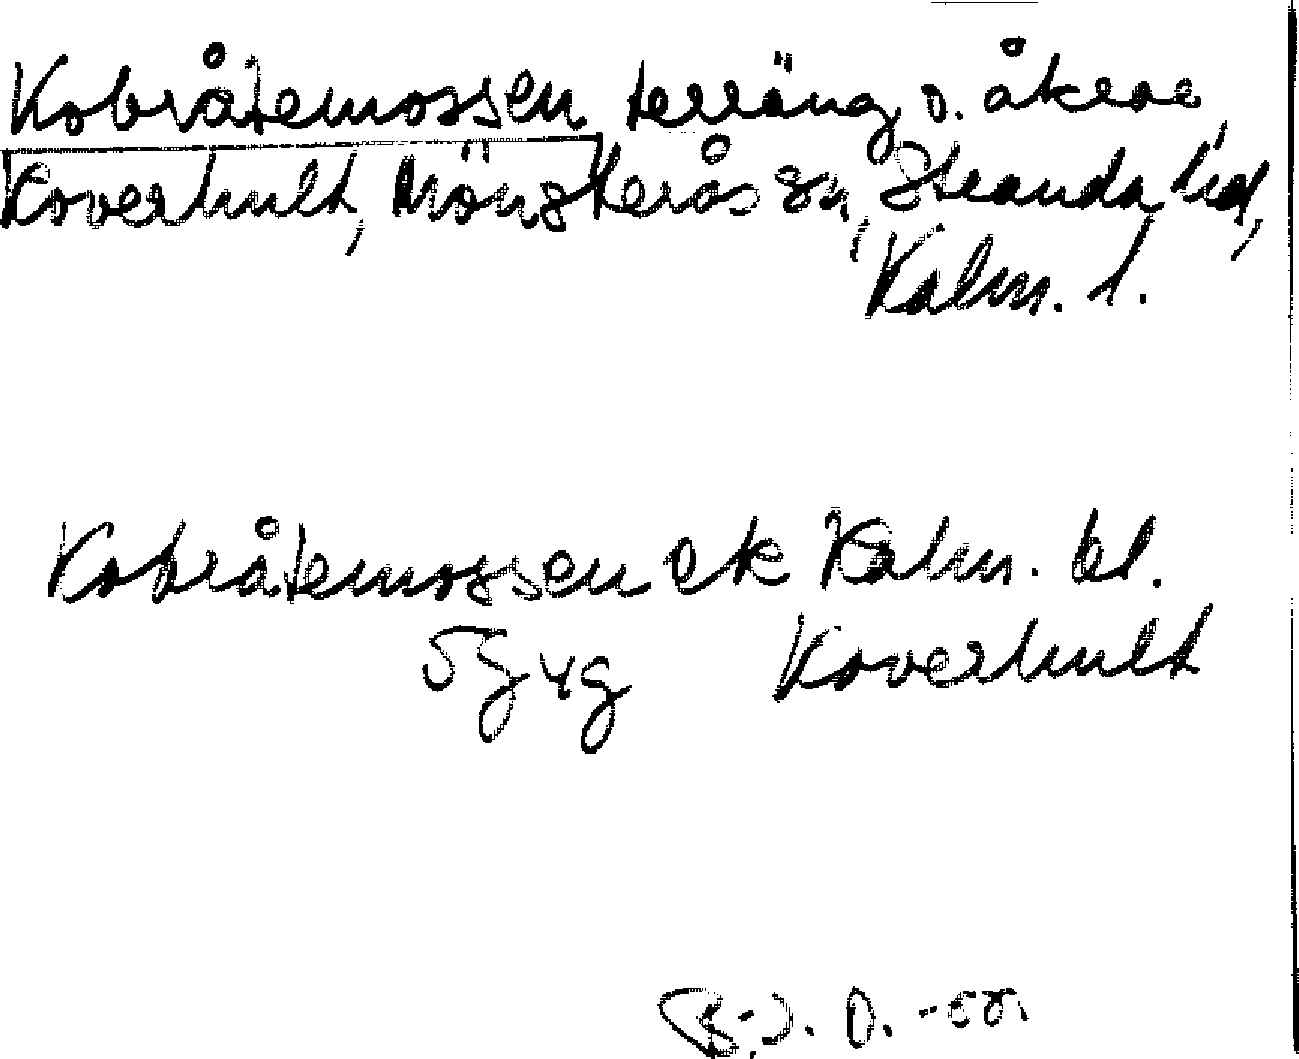 Kobråtemossen terräng o. åkrar
Koverhult, Mönsterås sn, Stranda hd,
Kalm. l.
Kobråtemossen ek Kalm. bl.
5g4g Koverhult
B.-J. O. -58.